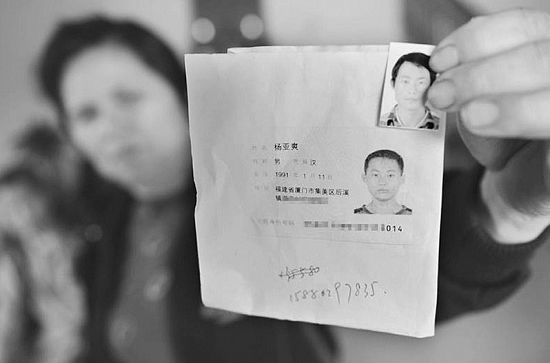 姓名 杨亚爽
性别 男 民族 汉
出生 1991 年 1 月 11 日
福建省厦门市集美区后溪
镇
公民身份号码 014